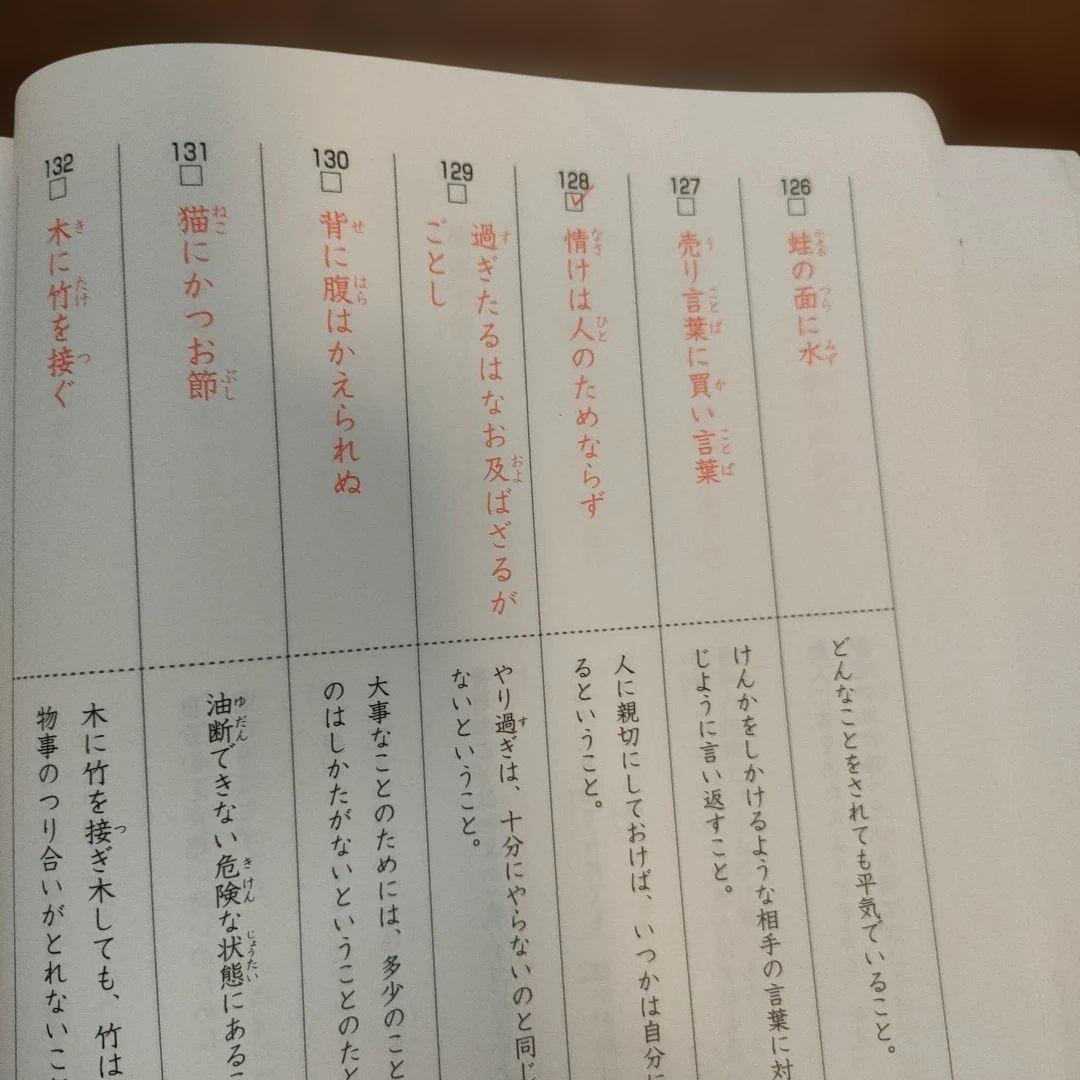 126
蛙の面に水
どんなことをされても平気でいること。
127
売り言葉に買い言葉
けんかをしかけるような相手の言葉に対
じように言い返すこと。
128
情けは人のためならず
人に親切にしておけば、いつかは自分に
るということ。
129
過ぎたるはなお及ばざるが
ごとし
やり過ぎは、十分にやらないのと同じ
ないということ。
130
背に腹はかえられぬ
大事なことのためには、多少のこと
のはしかたがないということのたと
131
猫にかつお節
油断できない危険な状態にあるこ
132
木に竹を接ぐ
木に竹を接ぎ木しても、竹は
物事のつり合いがとれないこ